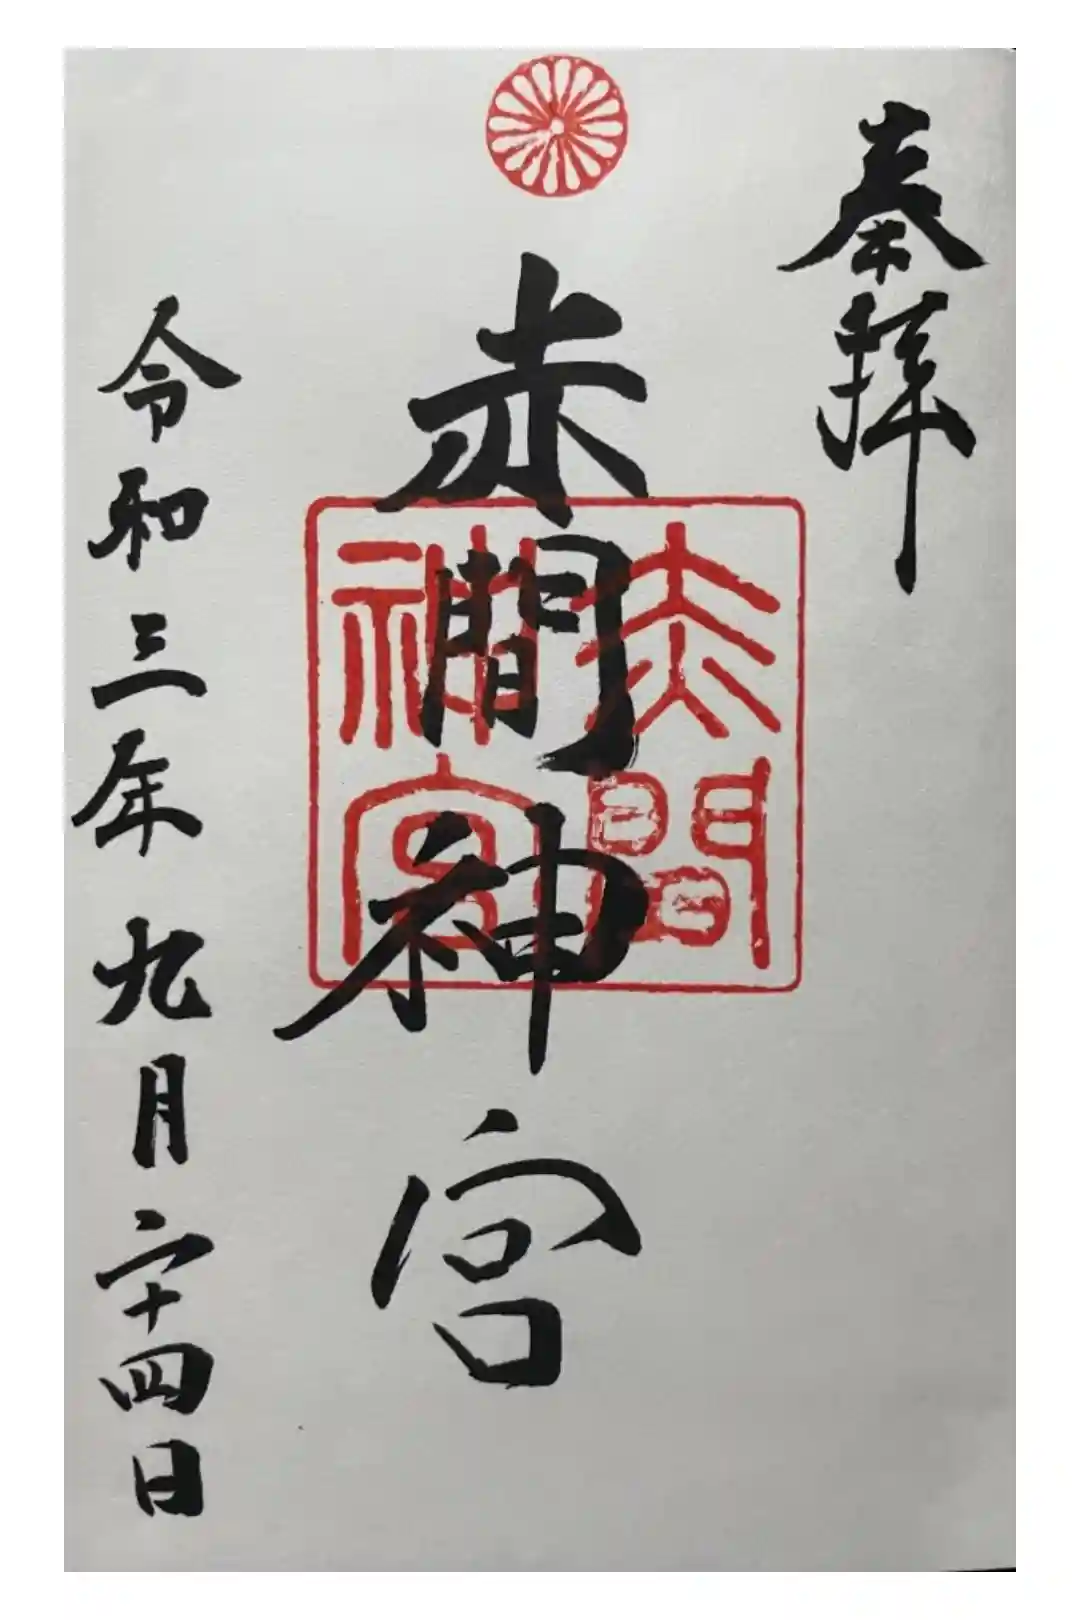 奉拝
赤間神宮
赤間
神宮
令和三年九月二十四日